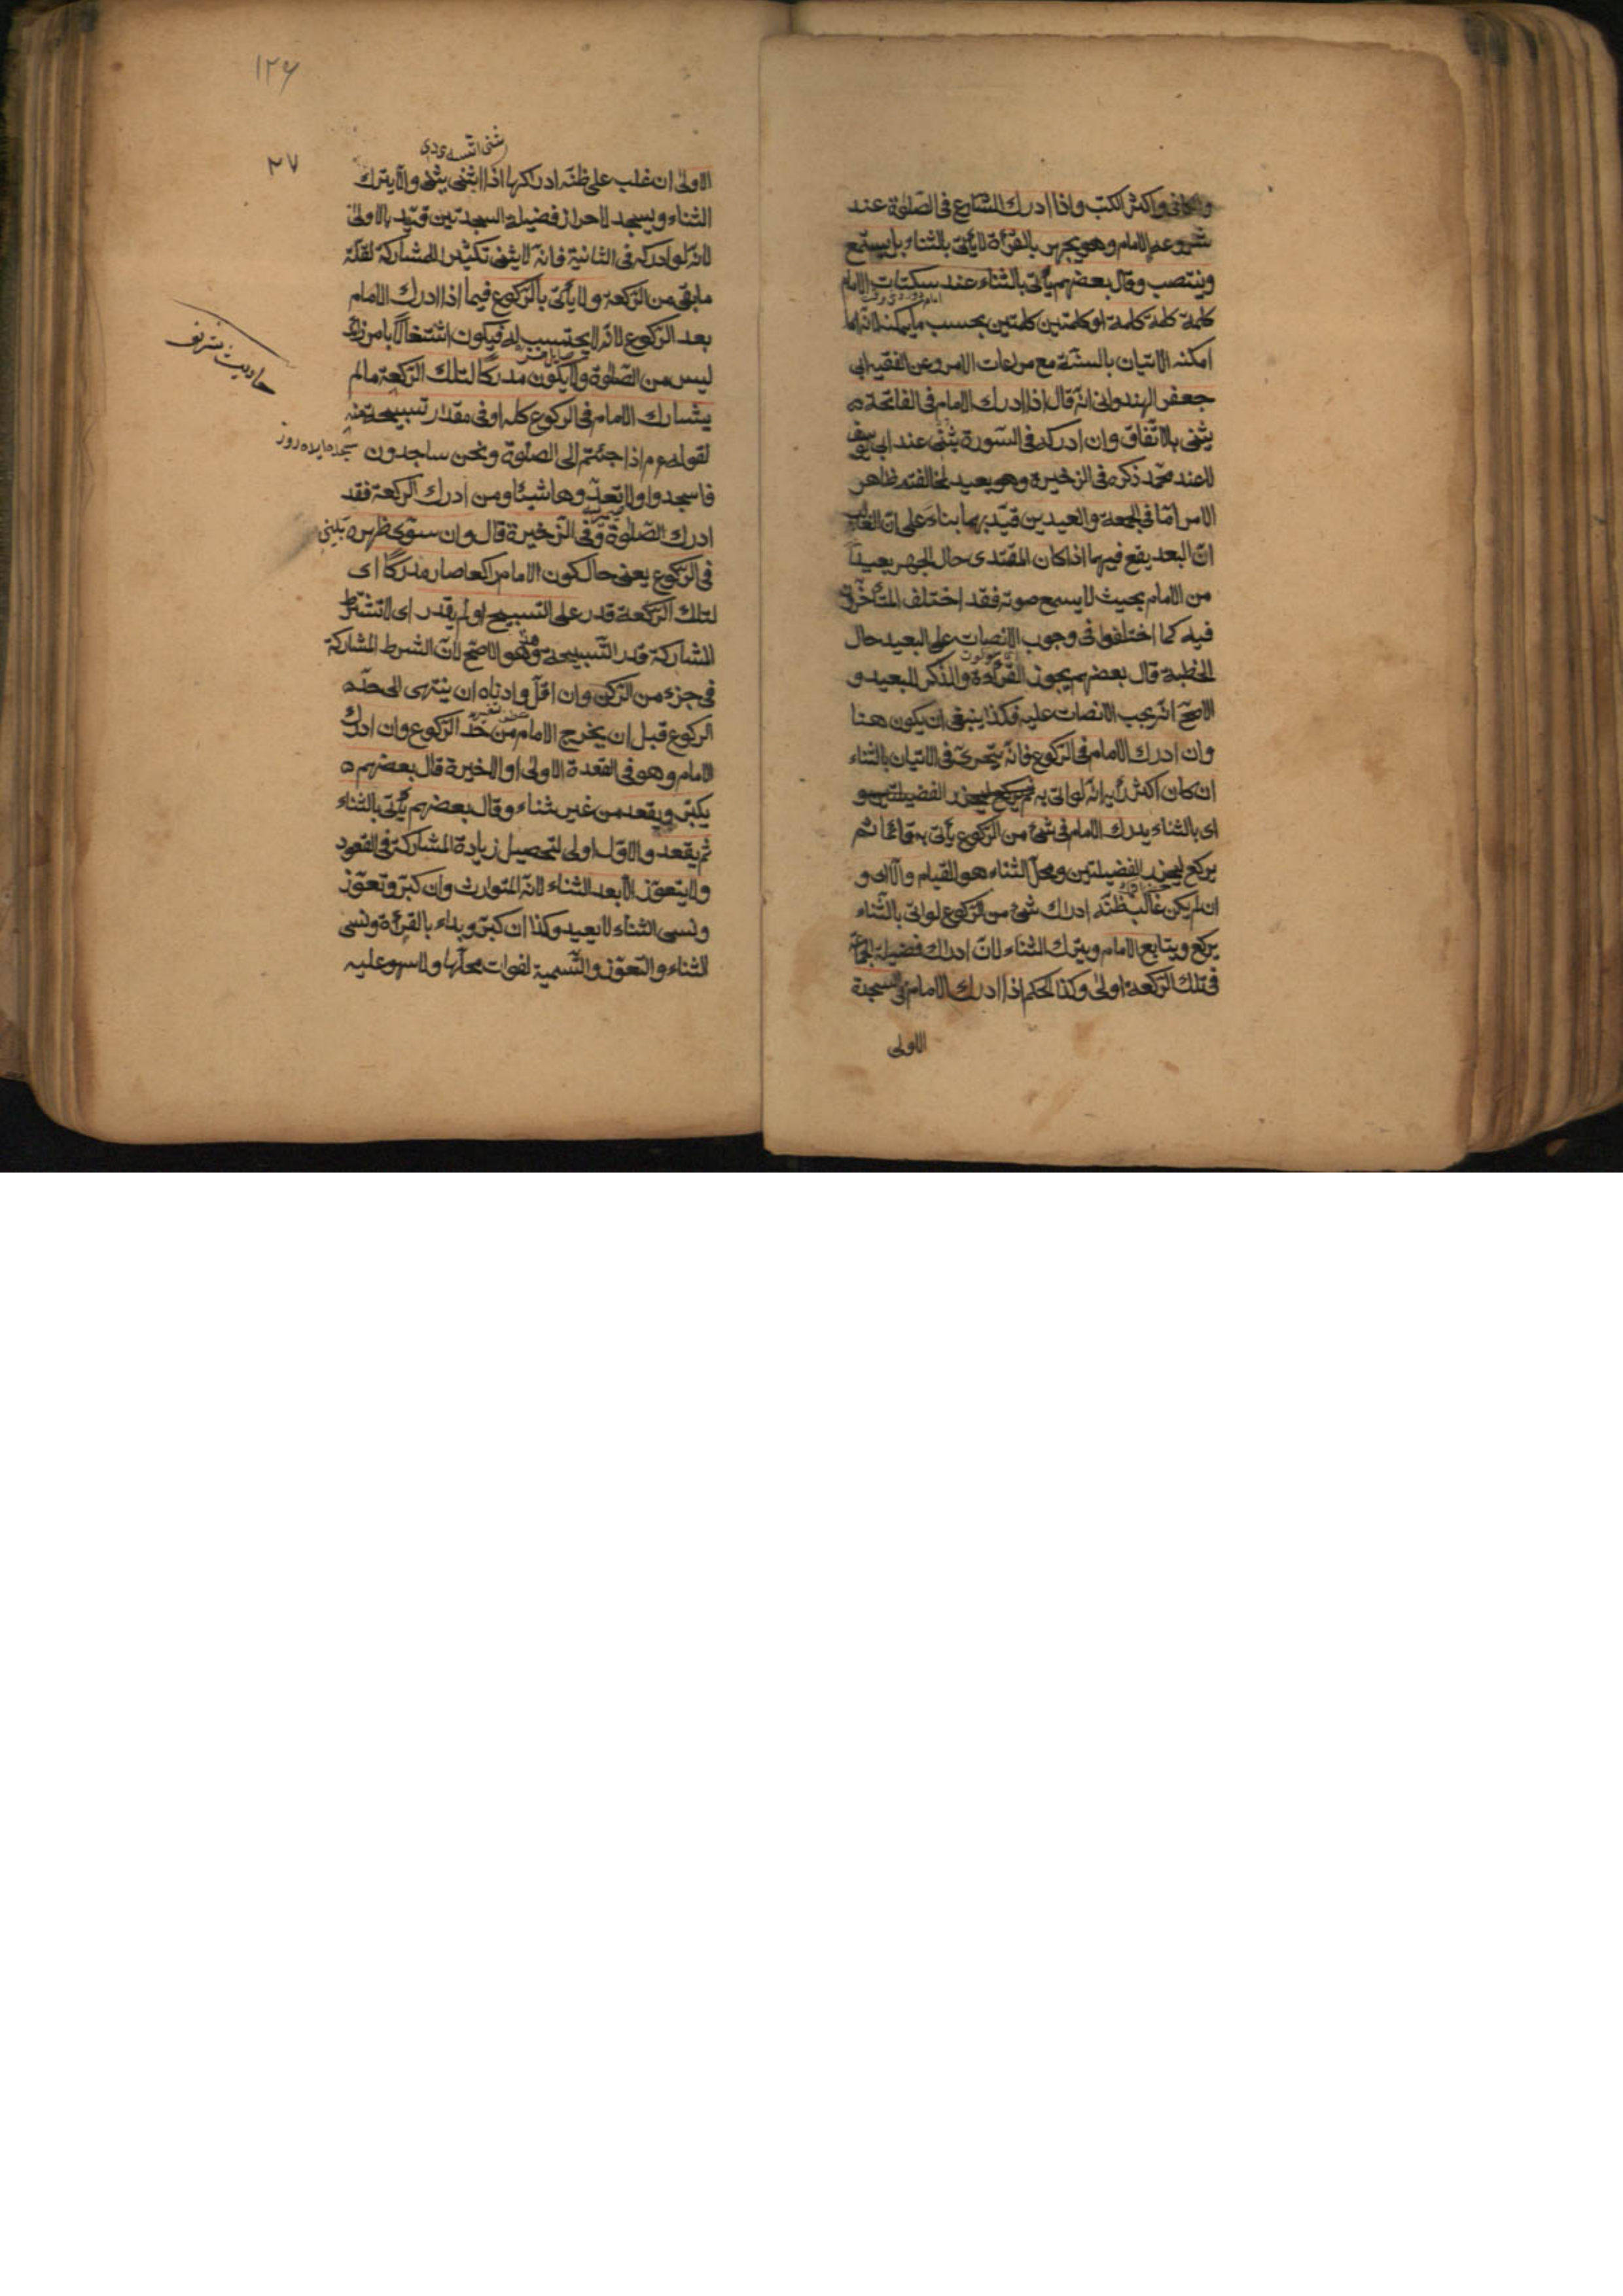 والخانى واكثر الكتب واذا ادرك الشارع فى الصلوة عند
شروعه الامام وهو يجهر بالقرأة لا يأتى بالثناء بل يستمع
وينتصب وقال بعضهم يأتى بالثناء عند سكتات الامام
كلمة كلمة كلمة او كلمتين كلمتين بحسب ما يمكنه لانه اما
امكنه الاتيان بالسنة مع مراعات الامر وعن الفقيه ابى
جعفر الهندوانى انه قال اذا ادرك الامام فى الفاتحة
يثنى بالاتفاق وان ادركه فى السورة يثنى عند ابى يوسف
لا عند محمد ذكره فى الذخيرة وهو بعيد لمخالفته ظاهر
الامر امّا فى الجمعة والعيدين قيّد بهما بناء على انّ الغالب
انّ البعد يقع فيهما اذا كان المقتدى حال الجهر بعيداً
من الامام بحيث لا يسمع صوته فقد اختلف المتأخرون
فيه كما اختلفوا فى وجوب الانصات على البعيد حال
الخطبة قال بعضهم يجوز القرأة والذكر للبعيد و
الاصحّ انّه يجب الانصات عليه فكذا ينبغى ان يكون هنا
وان ادرك الامام فى الركوع فانّه يتحرى فى الاتيان بالثناء
ان كان اكثر رأيه انّه لو اتى به ثم يركع ليحرز الفضيلتين و
اى بالثناء يدرك الامام فى شئ من الركوع يأتى به قائما ثم
يركع ليحرز الفضيلتين ومحلّ الثناء هو القيام والّا اى و
ان لم يكن غالب ظنّه ادراك شئ من الركوع لو اتى بالثناء
يركع ويتابع الامام ويترك الثناء لانّ ادراك فضيلة الجماعة
فى تلك الركعة اولى وكذا الحكم اذا ادرك الامام فى السجدة
الاولى
١٢٦
٢٧
الاولى ان غلب على ظنّه ادراكها اذا اثنى يثنى والّا يترك
الثناء ويسجد لاحراز فضيلة السجدتين قيّد بالاولى
لانّه لو ادركه فى الثانية فانه لا يثنى تكثيرا للمشاركة لقلّة
ما بقى من الركعة ولا يأتى بالركوع فيما اذا ادرك الامام
بعد الركوع لانّه لا يحتسب له فيكون اشتغالاً بامر زائد
ليس من الصلوة ولا يكون مدركاً لتلك الركعة مالم
يشارك الامام فى الركوع كله او فى مقدار تسبيحة منه
لقوله ع م اذا جئتم الى الصلوة ونحن ساجدون
فاسجدوا ولا تعدّوها شيئا ومن ادرك الركعة فقد
ادرك الصلوة وفى الذخيرة قال وان سوّى ظهره
فى الركوع يعنى حال كون الامام راكعا صار مدركاً اى
لتلك الركعة قدر على التسبيح او لم يقدر اى لا تشترط
المشاركة قدر التسبيحة وهو الاصحّ لانّ الشرط المشاركة
فى جزء من الركن وان اقلّ وادناه ان ينتهى الى حدّ
الركوع قبل ان يخرج الامام من حدّ الركوع وان ادرك
الامام وهو فى القعدة الاولى او الاخيرة قال بعضهم
يكبّر ويقعد من غير ثناء وقال بعضهم يأتى بالثناء
ثم يقعد والاوّل اولى لتحصيل زيادة المشاركة فى القعود
ولا يتعوّذ الّا بعد الثناء لانّه المتوارث وان كبّر وتعوّذ
ونسى الثناء لا يعيد وكذا ان كبّر وبداء بالقرأة ونسى
الثناء والتعوّذ والتّسمية لفوات محلّها ولا سهو عليه